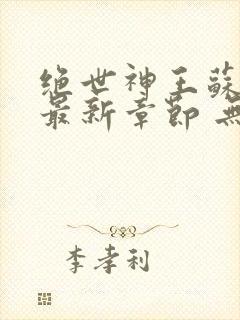 绝世神王蘇
最新章節 無
李孝利